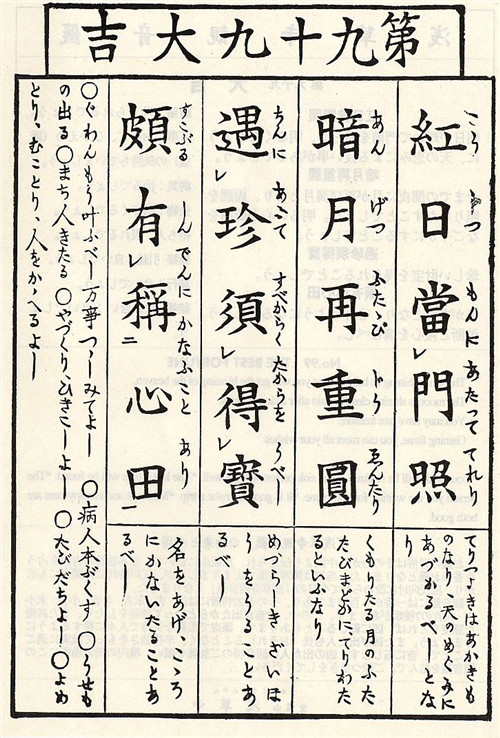 第九十九大吉
こう じつ もんに あたつて てれり
紅日當レ門照
てりつよきはあかきも
のなり天のめぐみに
あづかるべしとな
り
あん げつ ふたゝび ぢう ゑんたり
暗月再重圓
くもりたる月のふた
たびまどかにてりわた
るといふなり
ちんに あふて すべからく たからを うべし
遇レ珍須レ得レ寶
めづらしきざいほ
うをうることあ
るべし
すこぶる しんでんに かなふこと あり
頗有レ稱二心田一
名をあげこゝろ
にかないたことあ
るべし
○ぐわんもう叶ふべし万事つゝしみてよし ○病人本ぶくす ○うせも
の出る○まち人きたる○やづくりひきこしよし ○たびだちよし○よめ
とり、むことり、人をかゝへるよし